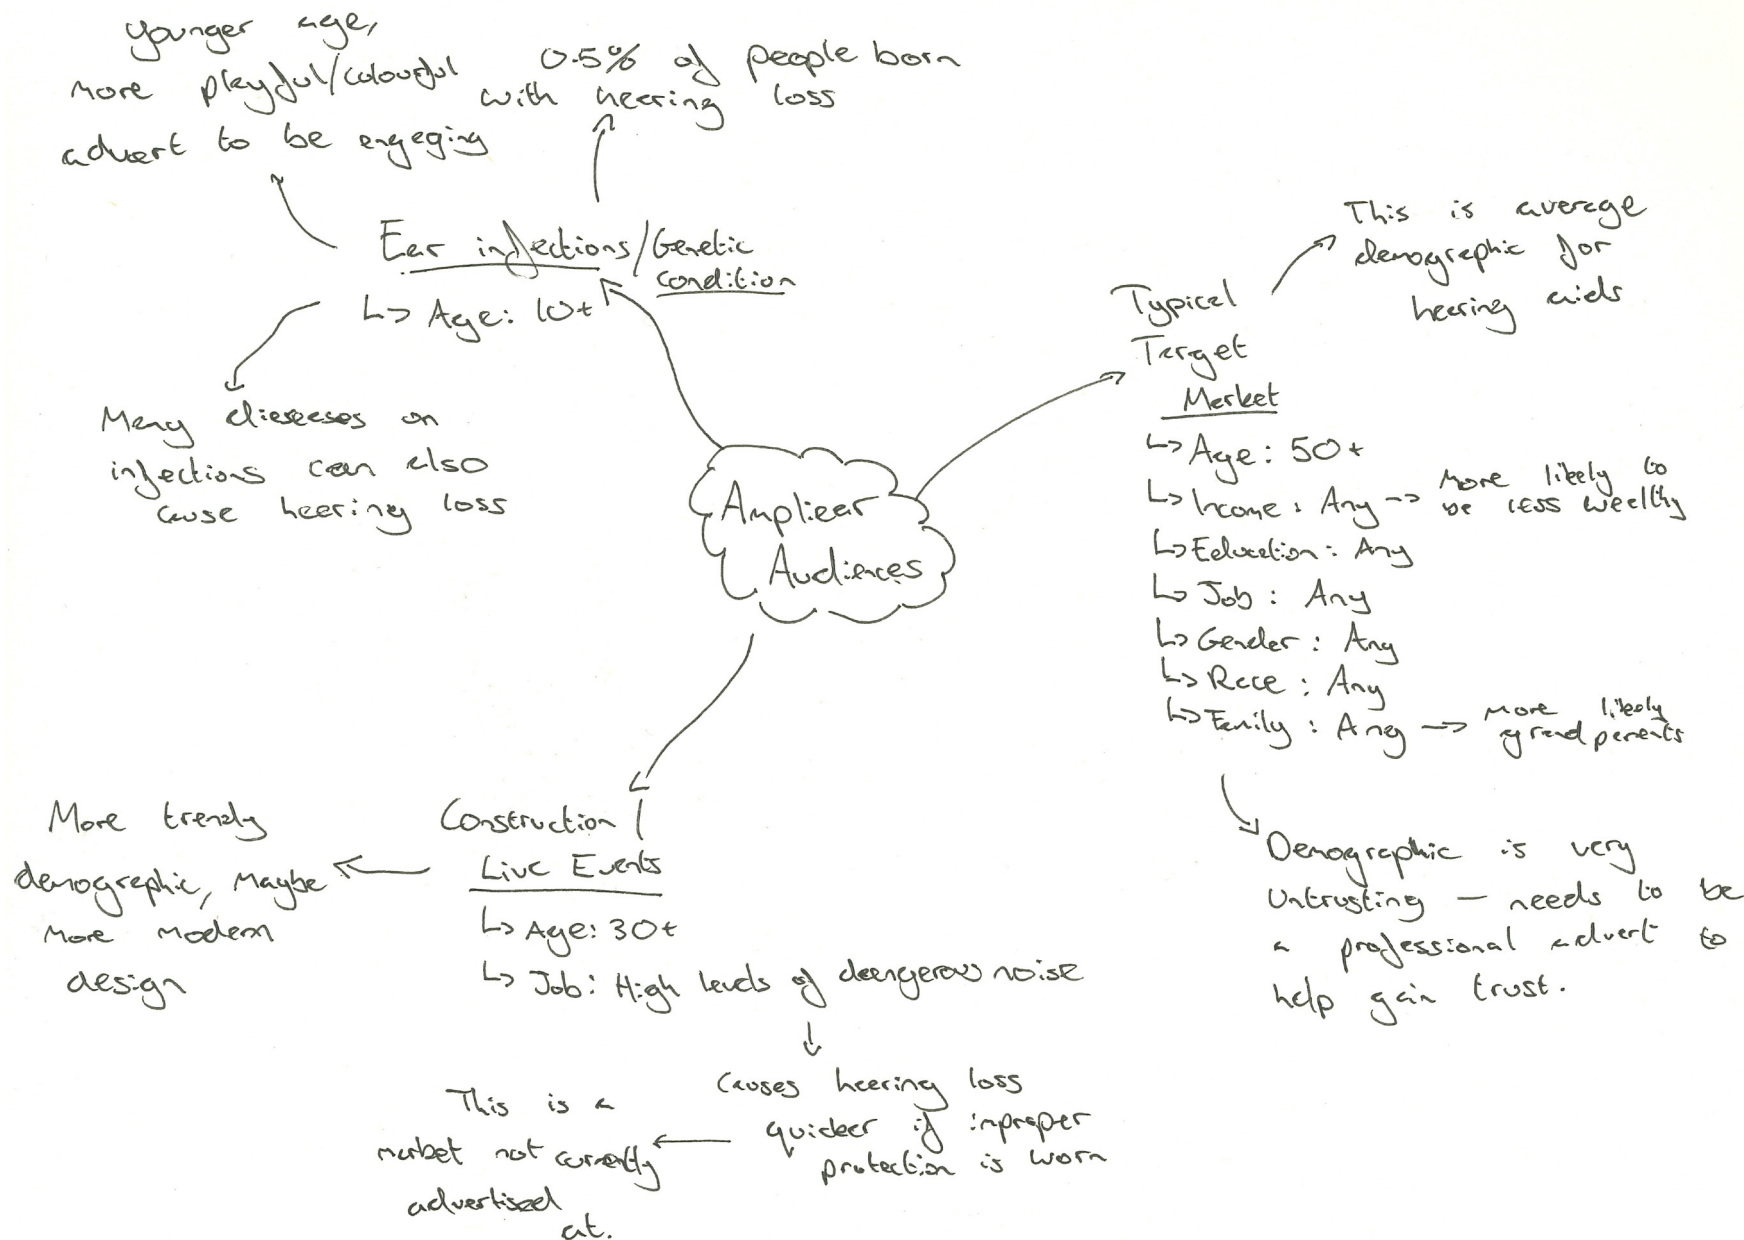 Younger age,
more playful/colourful
advert to be engaging
0.5% of people born
with hearing loss
Ear infections/Genetic
condition
↳ Age: 10+
Many diseases on
infections can also
cause hearing loss
Ampliear
Audiences
This is average
demographic for
hearing aids
Typical
Target
Market
↳ Age: 50+
↳ Income: Any → More likely to
be less wealthy
↳ Education: Any
↳ Job: Any
↳ Gender: Any
↳ Race: Any
↳ Family: Any → More likely
grandparents
Demographic is very
untrusting — needs to be
a professional advert to
help gain trust.
Construction /
Live Events
↳ Age: 30+
↳ Job: High levels of dangerous noise
More trendy
demographic, maybe
more modern
design
Causes hearing loss
quicker if improper
protection is worn
This is a
market not currently
advertised
at.